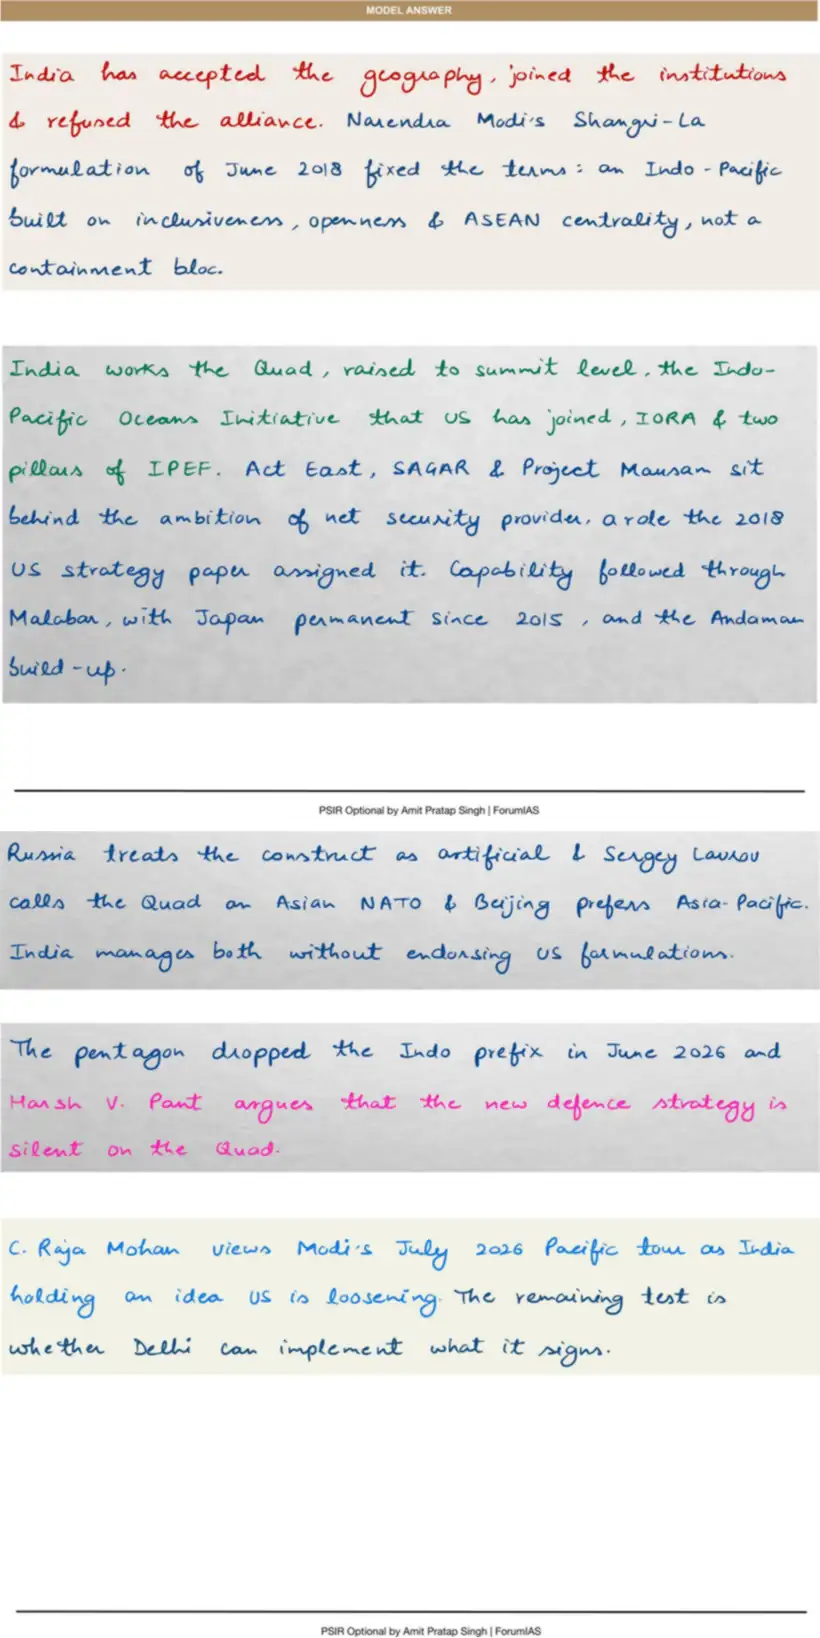 MODEL ANSWER
India has accepted the geography, joined the institutions
& refused the alliance. Narendra Modi's Shangri-La
formulation of June 2018 fixed the terms: an Indo-Pacific
built on inclusiveness, openness & ASEAN centrality, not a
containment bloc.
India works the Quad, raised to summit level, the Indo-
Pacific Oceans Initiative that US has joined, IORA & two
pillars of IPEF. Act East, SAGAR & Project Mausam sit
behind the ambition of net security provider, a role the 2018
US strategy paper assigned it. Capability followed through
Malabar, with Japan permanent since 2015, and the Andaman
build-up.
PSIR Optional by Amit Pratap Singh | ForumIAS
Russia treats the construct as artificial & Sergey Lavrov
calls the Quad an Asian NATO & Beijing prefers Asia-Pacific.
India manages both without endorsing US formulations.
The pentagon dropped the Indo prefix in June 2026 and
Harsh V. Pant argues that the new defence strategy is
silent on the Quad.
C. Raja Mohan views Modi's July 2026 Pacific tour as India
holding an idea US is loosening. The remaining test is
whether Delhi can implement what it signs.
PSIR Optional by Amit Pratap Singh | ForumIAS